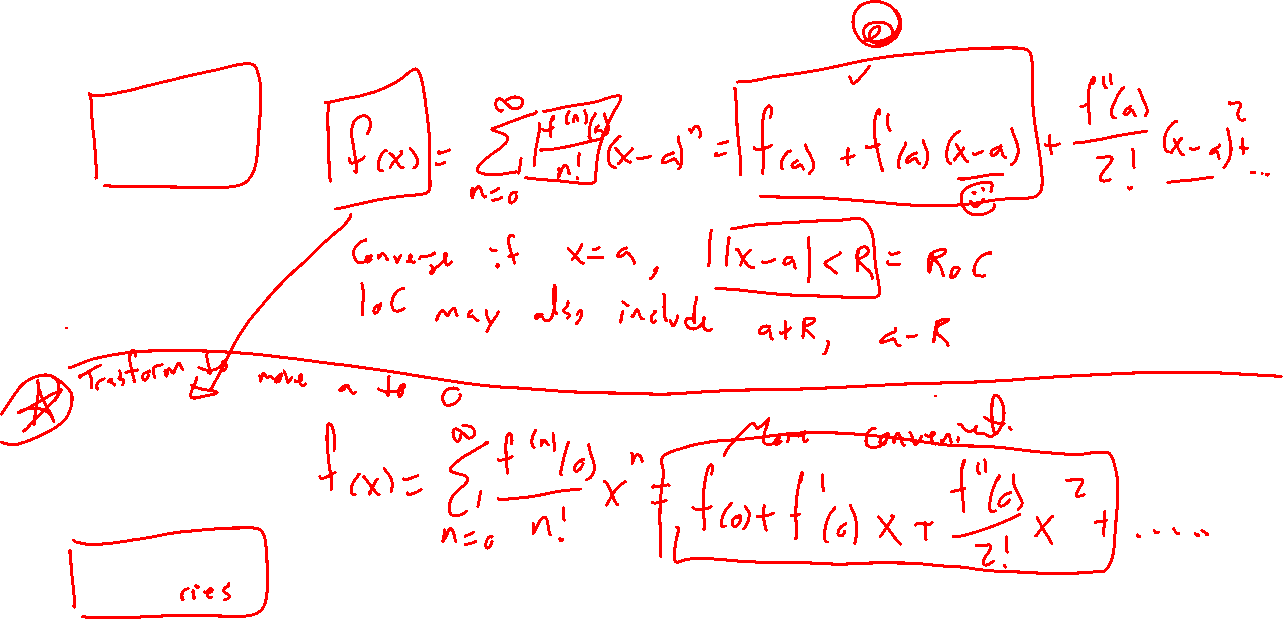 f(x) = ∑_{n=0}^{∞} f^{(n)}(a)/n! (x-a)^n = f(a) + f'(a) (x-a) + f''(a)/2! (x-a)^2 + ...
Converge if x=a, |x-a| < R = RoC
IoC may also include a+R, a-R
Trasform to move a to 0
More convenient.
f(x) = ∑_{n=0}^{∞} f^{(n)}(0)/n! x^n = f(0) + f'(0) x + f''(0)/2! x^2 + .....
ries